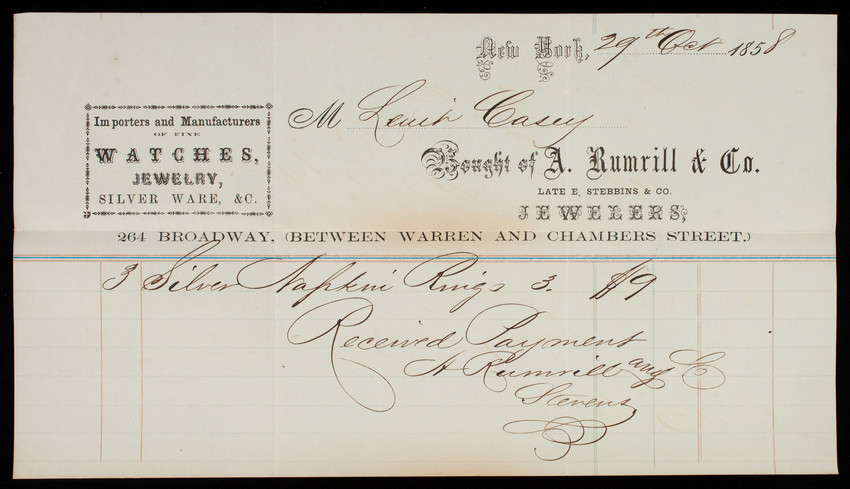 New York, 29th Oct 1858
Importers and Manufacturers
OF FINE
WATCHES,
JEWELRY,
SILVER WARE, &C.
M Lewis Casey
Bought of A. Rumrill & Co.
LATE E. STEBBINS & CO.
JEWELERS,
264 BROADWAY, (BETWEEN WARREN AND CHAMBERS STREET.)
3 Silver Napkin Rings 3. $9
Received Payment
A Rumrill and C
Stevens